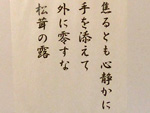 焦るとも心静かに
手を添えて
外に零すな
松茸の露